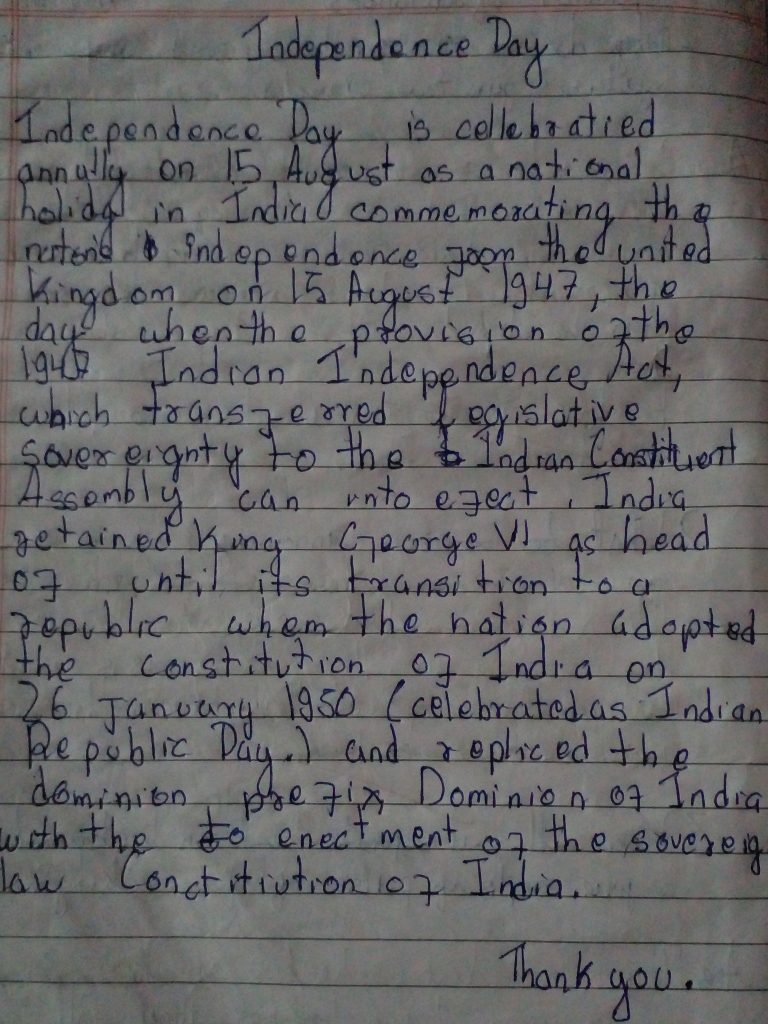 Independence Day
Independence Day is cellebratied
annually on 15 August as a national
holiday in India commemorating the
independence from the united
Kingdom on 15 August 1947, the
day when the provision of the
1947 Indian Independence Act,
which transferred Legislative
Sovereignty to the Indian Constituent
Assembly can into efect. India
retained King George VI as head
of until its transition to a
republic whem the nation adopted
the constitution of India on
26 January 1950 (celebrated as Indian
Republic Day.) and repliced the
dominion prefix Dominion of India
with the enectment of the sovereig
law Conctitiution of India.
Thank you.